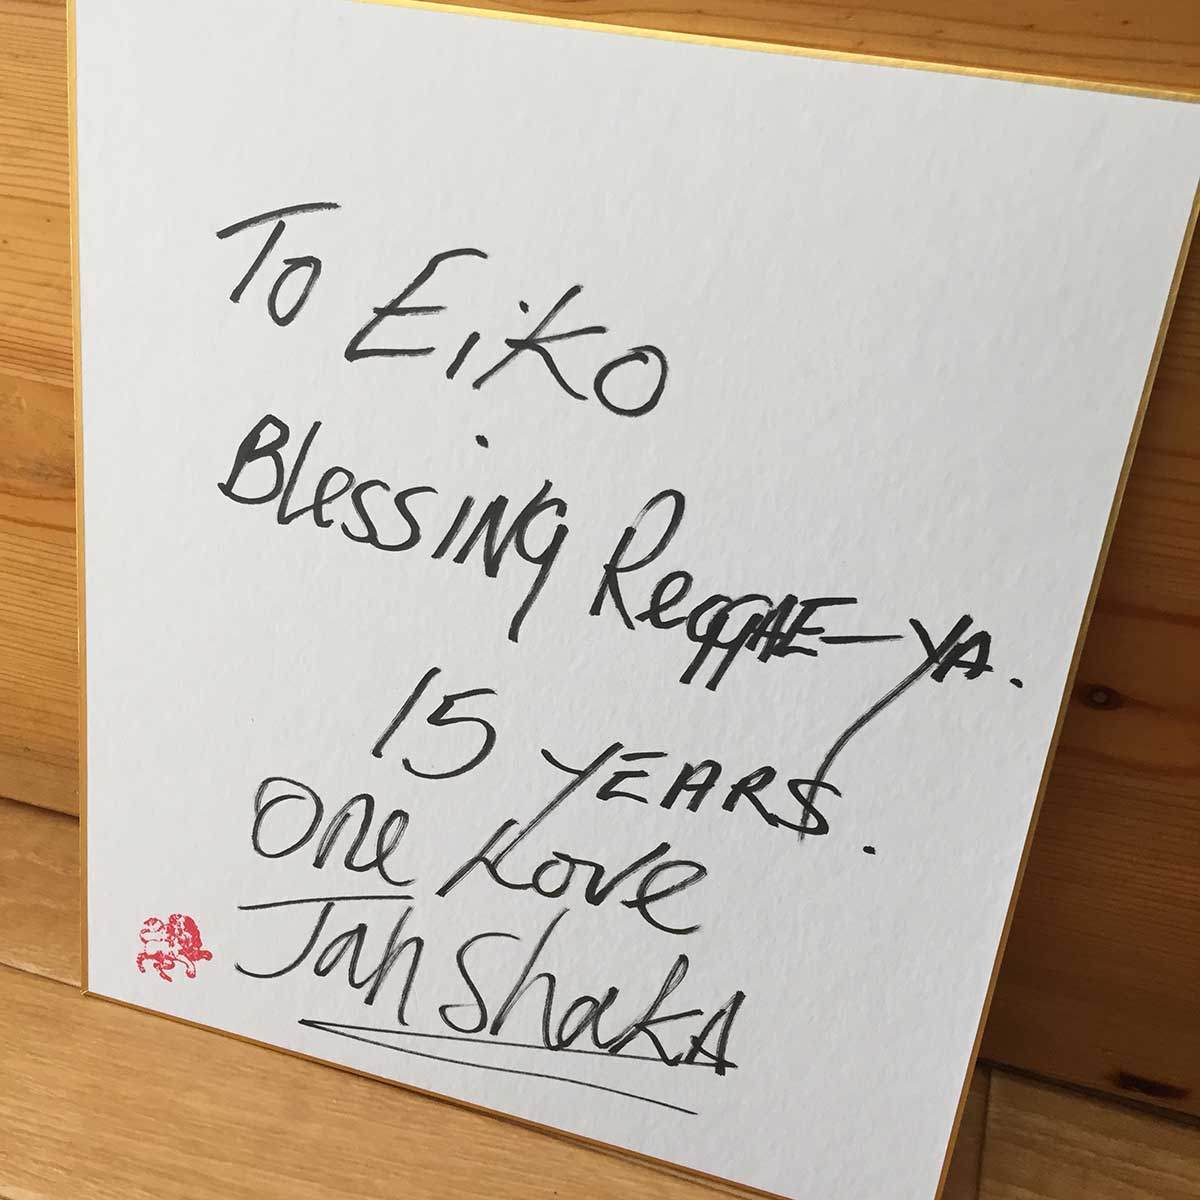 To Eiko
Blessing Reggae-YA.
15 YEARS.
One Love
Jah Shaka